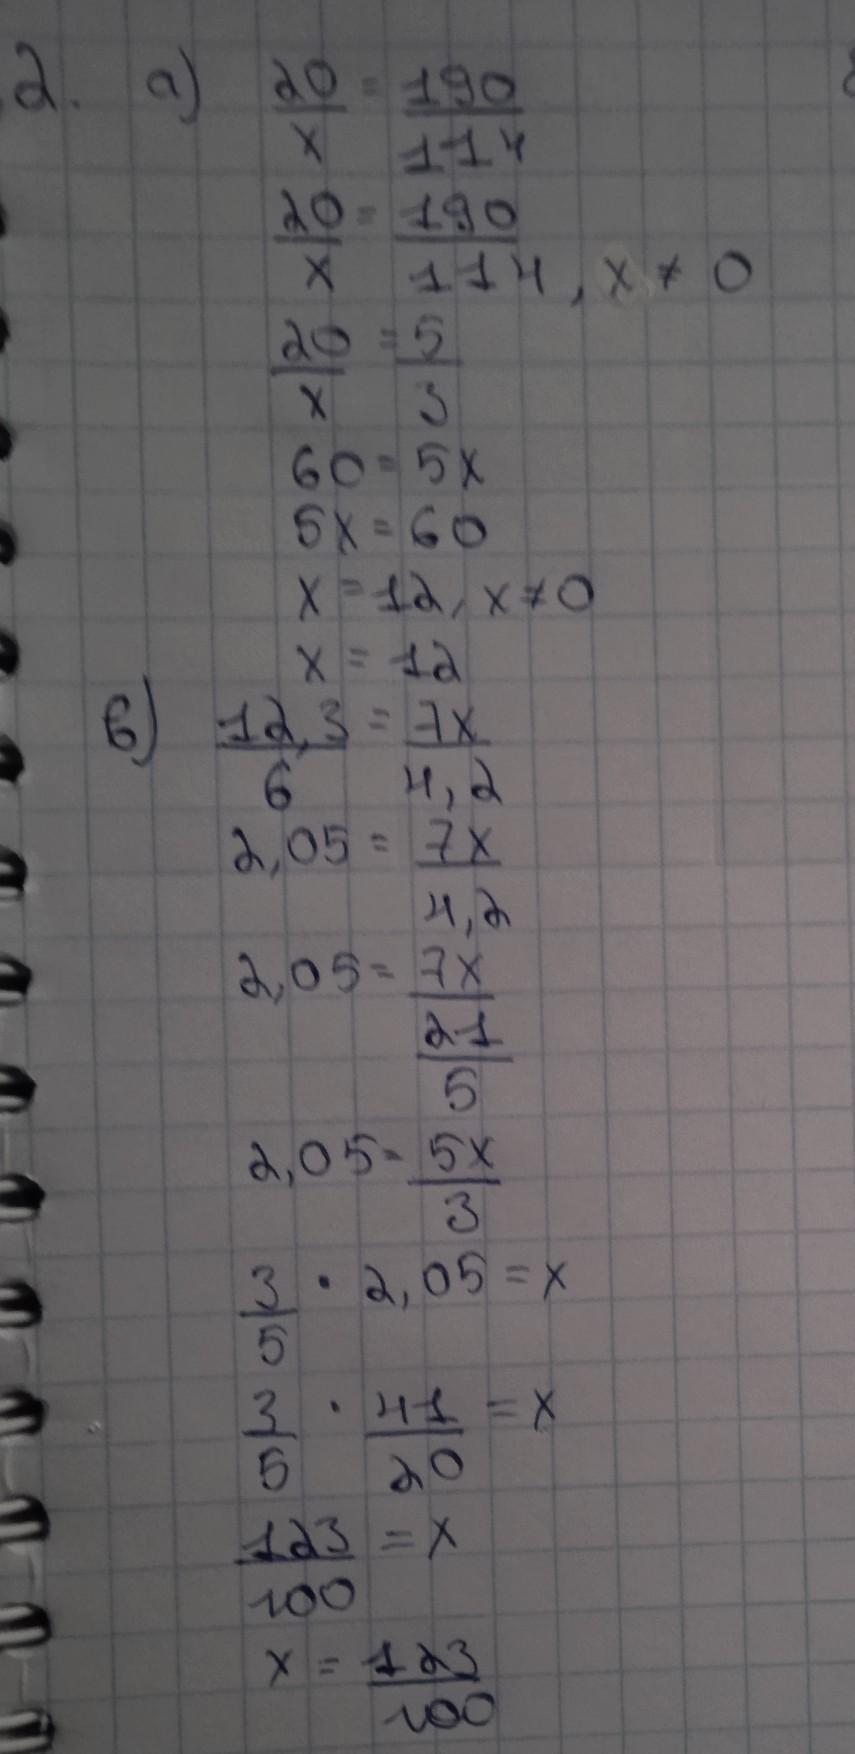 2. a) 20/x = 190/114
20/x = 190/114, x ≠ 0
20/x = 5/3
60 = 5x
5x = 60
x = 12, x ≠ 0
x = 12
б) 12,3/6 = 7x/4,2
2,05 = 7x/4,2
2,05 = 7x/(21/5)
2,05 = 5x/3
3/5 · 2,05 = x
3/5 · 41/20 = x
123/100 = x
x = 123/100